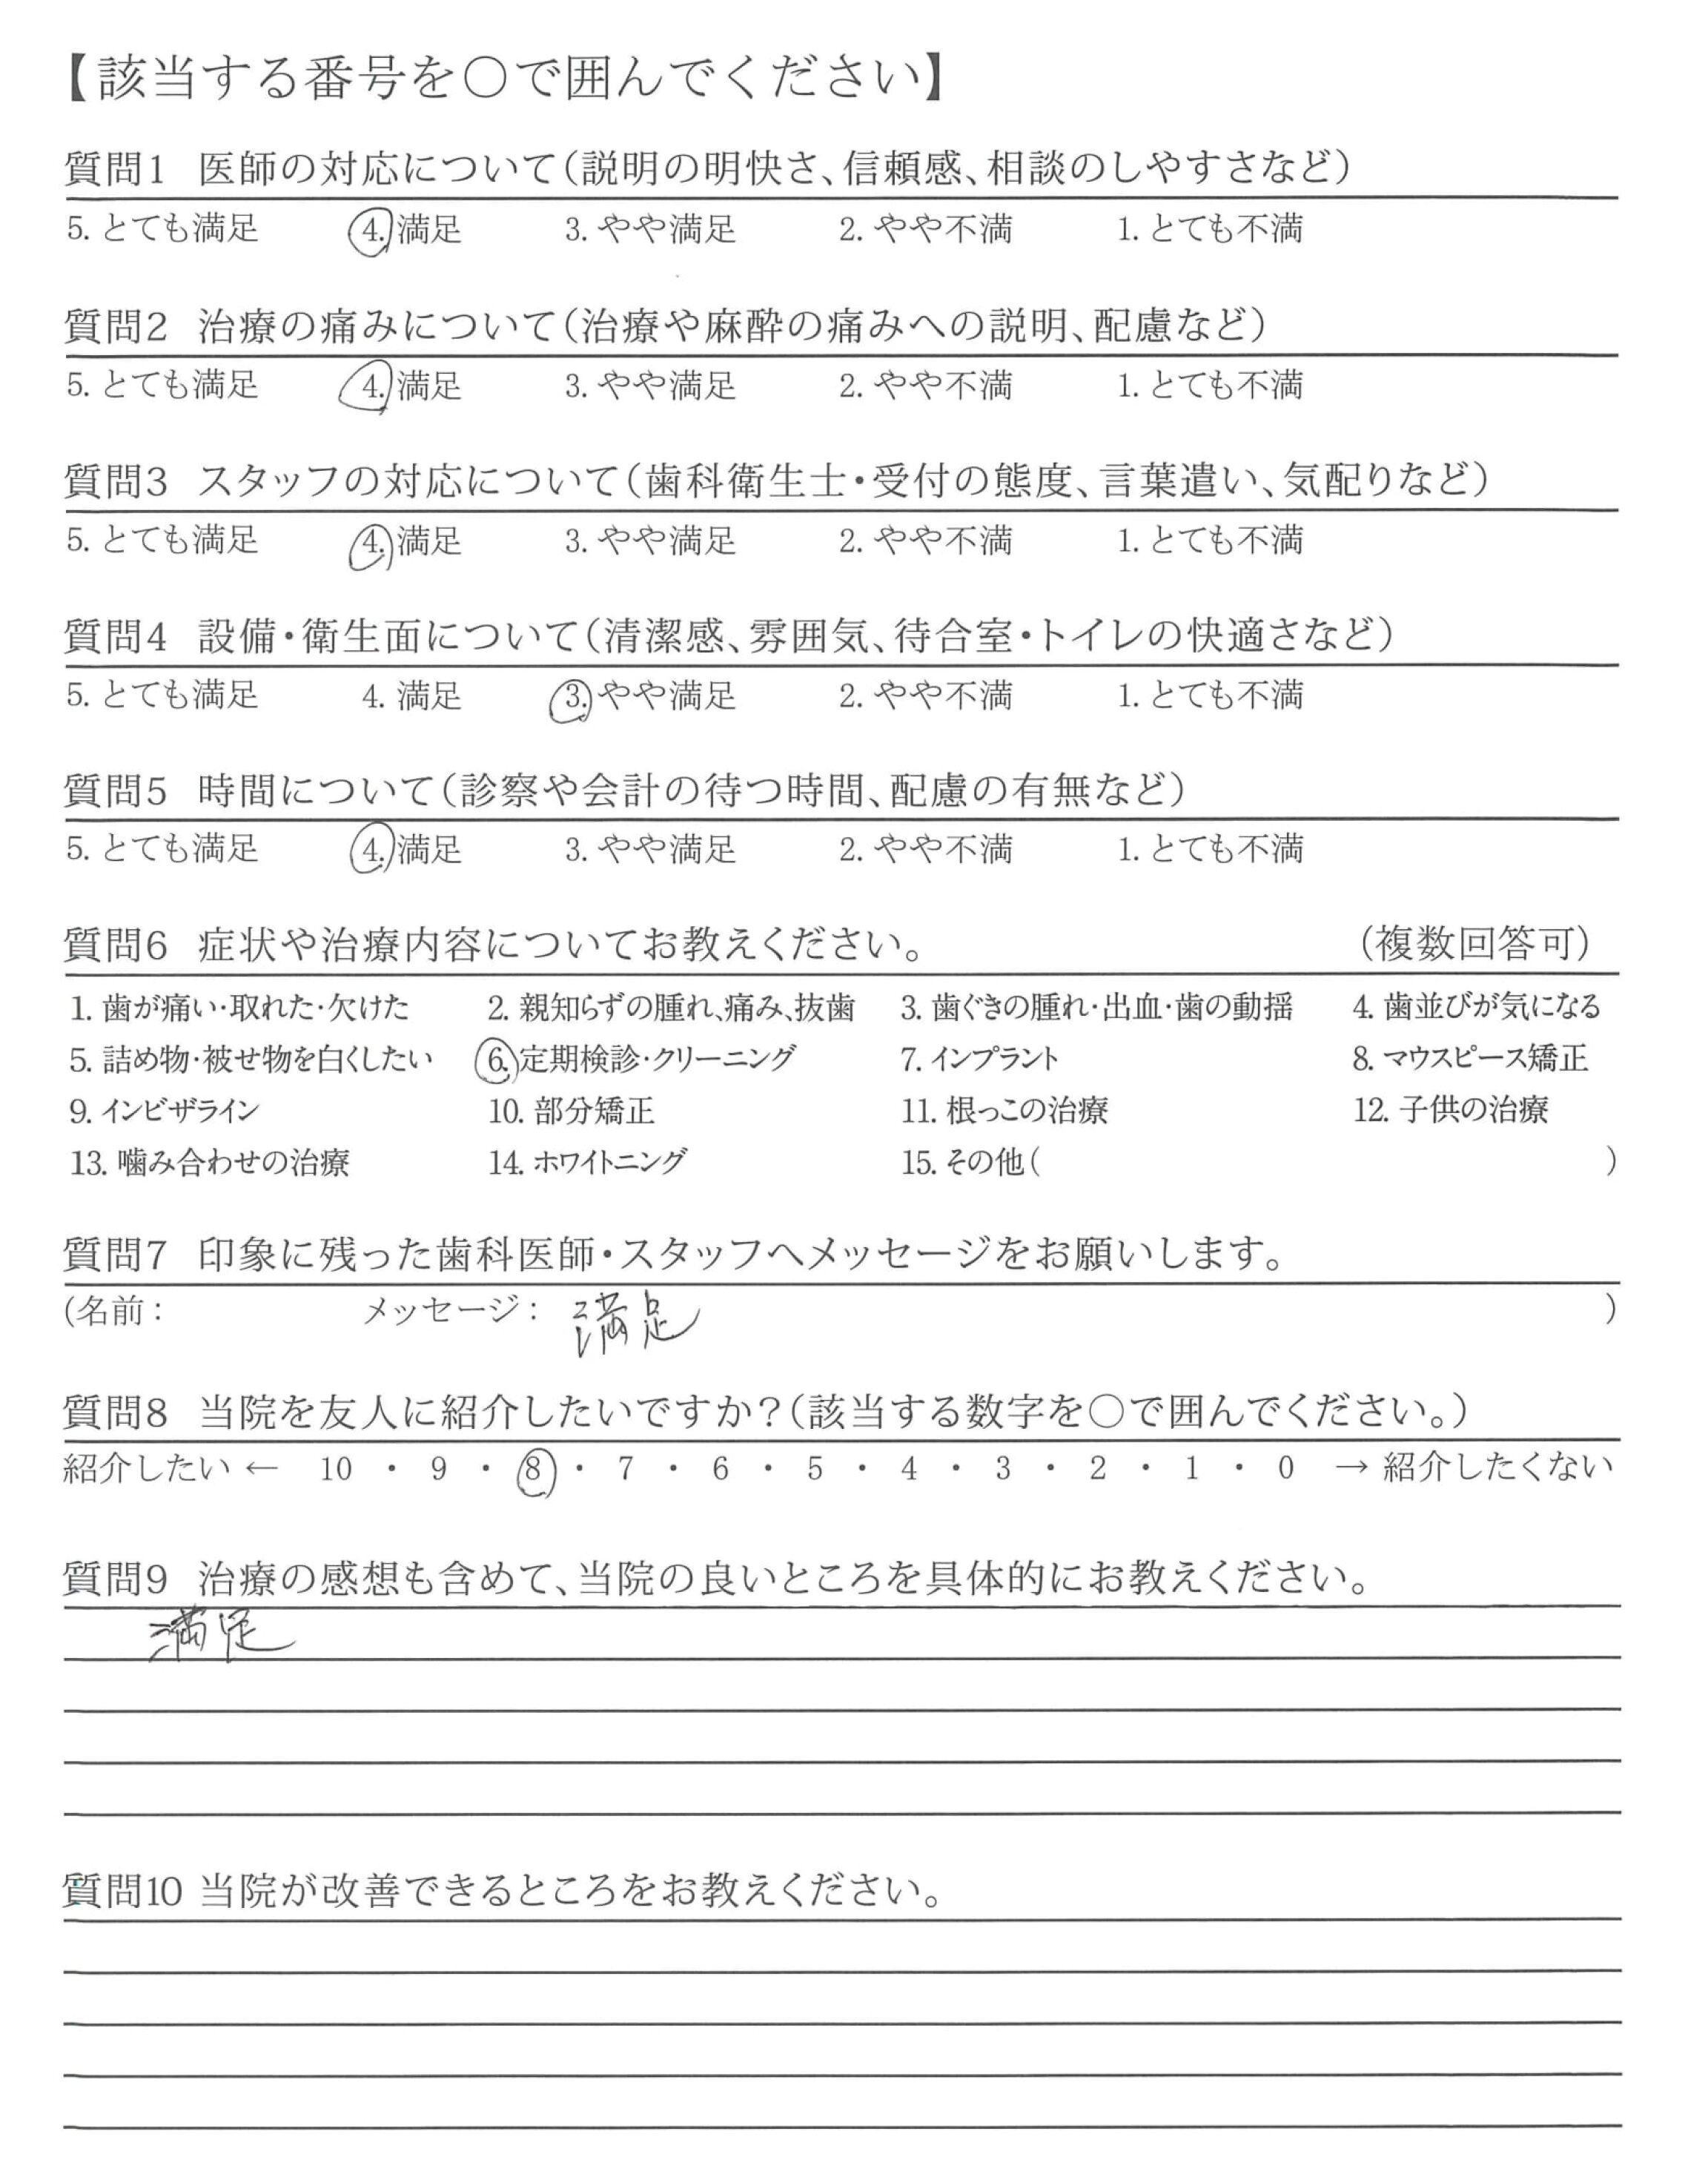 【該当する番号を○で囲んでください】
質問1 医師の対応について（説明の明快さ、信頼感、相談のしやすさなど）
5. とても満足 4. 満足 3. やや満足 2. やや不満 1. とても不満
質問2 治療の痛みについて（治療や麻酔の痛みへの説明、配慮など）
5. とても満足 4. 満足 3. やや満足 2. やや不満 1. とても不満
質問3 スタッフの対応について（歯科衛生士・受付の態度、言葉遣い、気配りなど）
5. とても満足 4. 満足 3. やや満足 2. やや不満 1. とても不満
質問4 設備・衛生面について（清潔感、雰囲気、待合室・トイレの快適さなど）
5. とても満足 4. 満足 3. やや満足 2. やや不満 1. とても不満
質問5 時間について（診察や会計の待つ時間、配慮の有無など）
5. とても満足 4. 満足 3. やや満足 2. やや不満 1. とても不満
質問6 症状や治療内容についてお教えください。 （複数回答可）
1. 歯が痛い・取れた・欠けた 2. 親知らずの腫れ、痛み、抜歯 3. 歯ぐきの腫れ・出血・歯の動揺 4. 歯並びが気になる
5. 詰め物・被せ物を白くしたい 6. 定期検診・クリーニング 7. インプラント 8. マウスピース矯正
9. インビザライン 10. 部分矯正 11. 根っこの治療 12. 子供の治療
13. 噛み合わせの治療 14. ホワイトニング 15. その他（ ）
質問7 印象に残った歯科医師・スタッフへメッセージをお願いします。
（名前： メッセージ： 満足 ）
質問8 当院を友人に紹介したいですか？（該当する数字を○で囲んでください。）
紹介したい ← 10 ・ 9 ・ 8 ・ 7 ・ 6 ・ 5 ・ 4 ・ 3 ・ 2 ・ 1 ・ 0 → 紹介したくない
質問9 治療の感想も含めて、当院の良いところを具体的にお教えください。
満足
質問10 当院が改善できるところをお教えください。